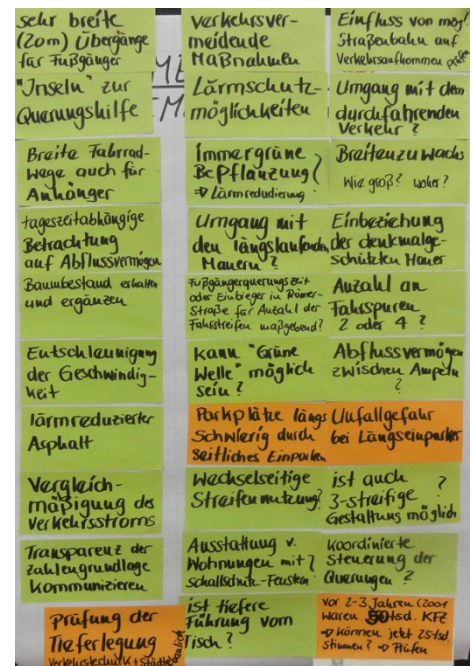 sehr breite
(20m) Übergänge
für Fußgänger
"Inseln" zur
Querungshilfe
Breite Fahrrad-
wege auch für
Anhänger
tageszeitabhängige
Betrachtung
auf Abflussvermögen
Baumbestand erhalten
und ergänzen
Entschleunigung
der Geschwindig-
keit
lärmreduzierter
Asphalt
Vergleich-
mäßigung des
Verkehrsstroms
Transparenz der
zahlengrundlage
kommunizieren
Prüfung der
Tieferlegung
Verkehrstechnik + Städtebaulich
verkehrsver-
meidende
Maßnahmen
Lärmschutz-
möglichkeiten
immergrüne
Bepflanzung?
⇒ Lärmreduzierung
Umgang mit
den längslaufenden
Mauern?
Fußgängerquerungszeit
oder Einbieger in Römer-
Straße für Anzahl der
Fahrstreifen maßgebend?
kann "Grüne
Welle" möglich
sein?
Parkplätze längs
Schwierig durch
seitliches Einparken
Wechselseitige
Streifennutzung?
Ausstattung v.
Wohnungen mit?
Schallschutz-Fenstern
ist tiefere
Führung vom
Tisch?
Einfluss von mögl.
Straßenbahn auf
Verkehrsaufkommen prüfen
Umgang mit dem
durchfahrenden
Verkehr?
Breitenzuwachs
Wie groß? woher?
Einbeziehung
der denkmalge-
schützten Mauer
Anzahl an
Fahrspuren
2 oder 4?
Abflussvermögen
zwischen Ampeln
?
Unfallgefahr
bei Längseinparker
ist auch ?
3-streifige
Gestaltung möglich
koordinierte
Steuerung der
Querungen?
vor 2-3 Jahren (2001
waren 50tsd. KFZ
⇒ können jetzt 25tsd.
stimmen? ⇒ Prüfen